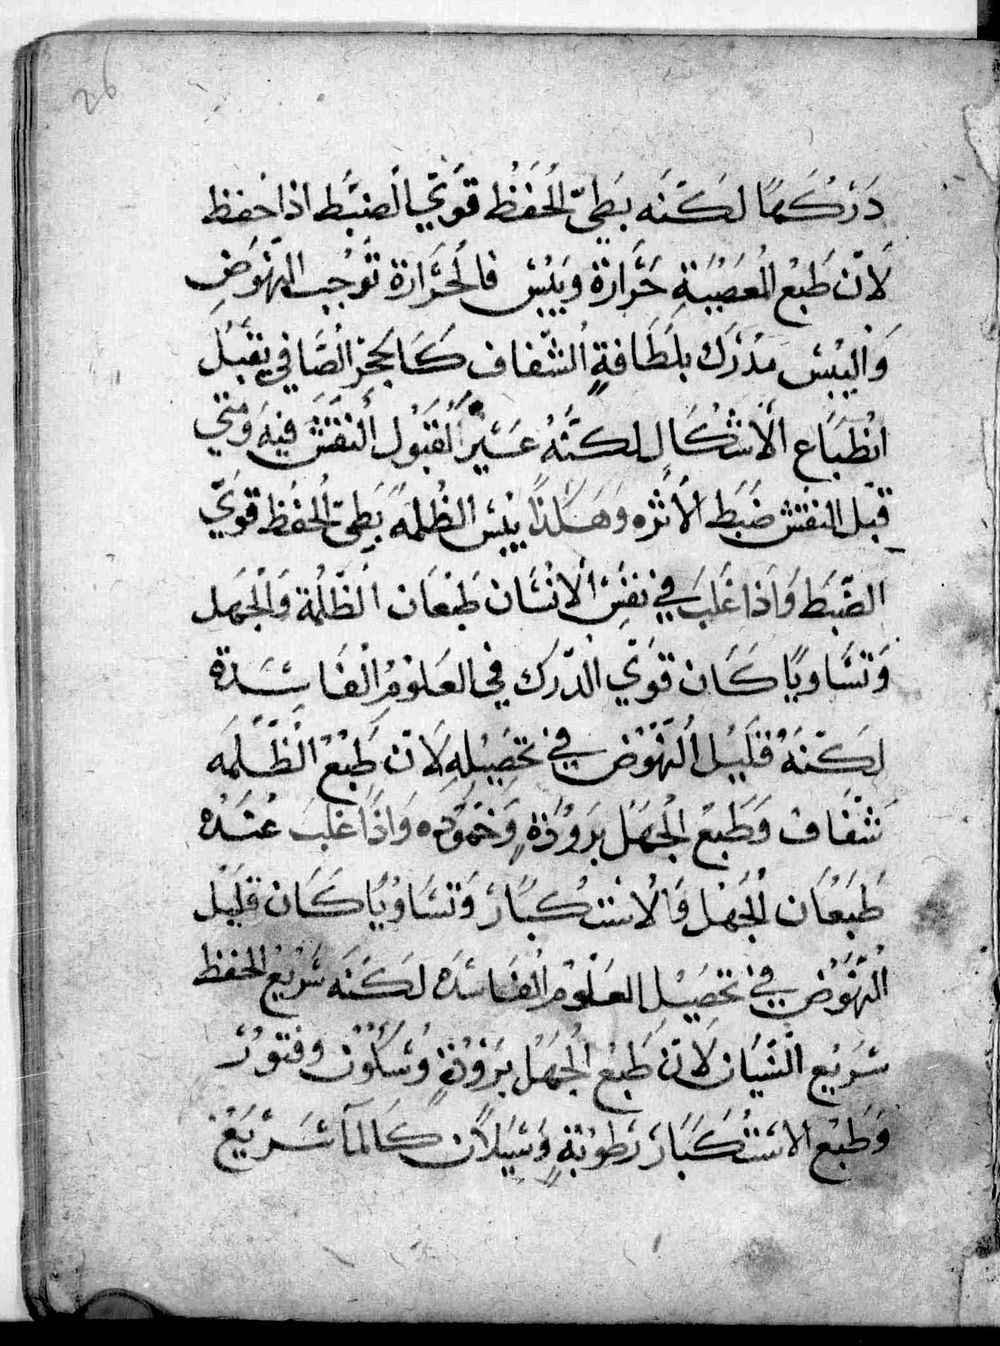 26
دَرْكَهَا لَكنَّه بَطيّ الحُفَظُ قوَيّ الضبَط اذا حَفظ
لَانّ طَبعُ المُعصَيَةِ حَرَارَة وَيَبْس فالحَرَارَة تُوجُب النّهُوَضِ
وَاليْبْسَ مدْرَك بلَطَافةٍ الشّفاف كَالحجَر الصَّافي يقبَلُ
انْطبَاع الأشكَال لكنَّهُ عَسَيرُ القُبَوُل النقْش فيهَ وَمتي
قبَل النقش ضَبَط الأثرْه وَهَكذَا يبْس الظُلمَة بَطيّ الحُفَظ قَويّ
الضّبَط وَاذا غَلبَ في نفسُ الأنْسَان طَبْعَان الظَلْمَة وَالجهَل
وَتسَاويَا كَان قوَيّ الدّرك في العَلوْمُ الفَاسَدَة
لكنّهُ قليَل النّهوُض في تحَصِيْلهِ لاَنّ طَبْعُ الظّلَمَه
شَفّاف وَطَبعْ الجُهَل بَروُدَةٍ وَخَموُده وَاذَا غَلبَ عنْدَه
طَبَعْان الجُهَل وَالاسْتكبَار وَتسَاويُا كَان قليَل
النّهوَضِ في تحَصيْل العَلوْمْ الفَاسَدَه لكنَه سَريْع الحفظ
سَريْع النّسَيان لاَنّ طَبْع الجُهَل بَروُدَةٍ وَسَكُوْن وفتوُرْ
وَطبَعْ الاسَتْكبَارْ رَطوبَةٍ وَسَيَلاَن كَالمآ سَريَعْ